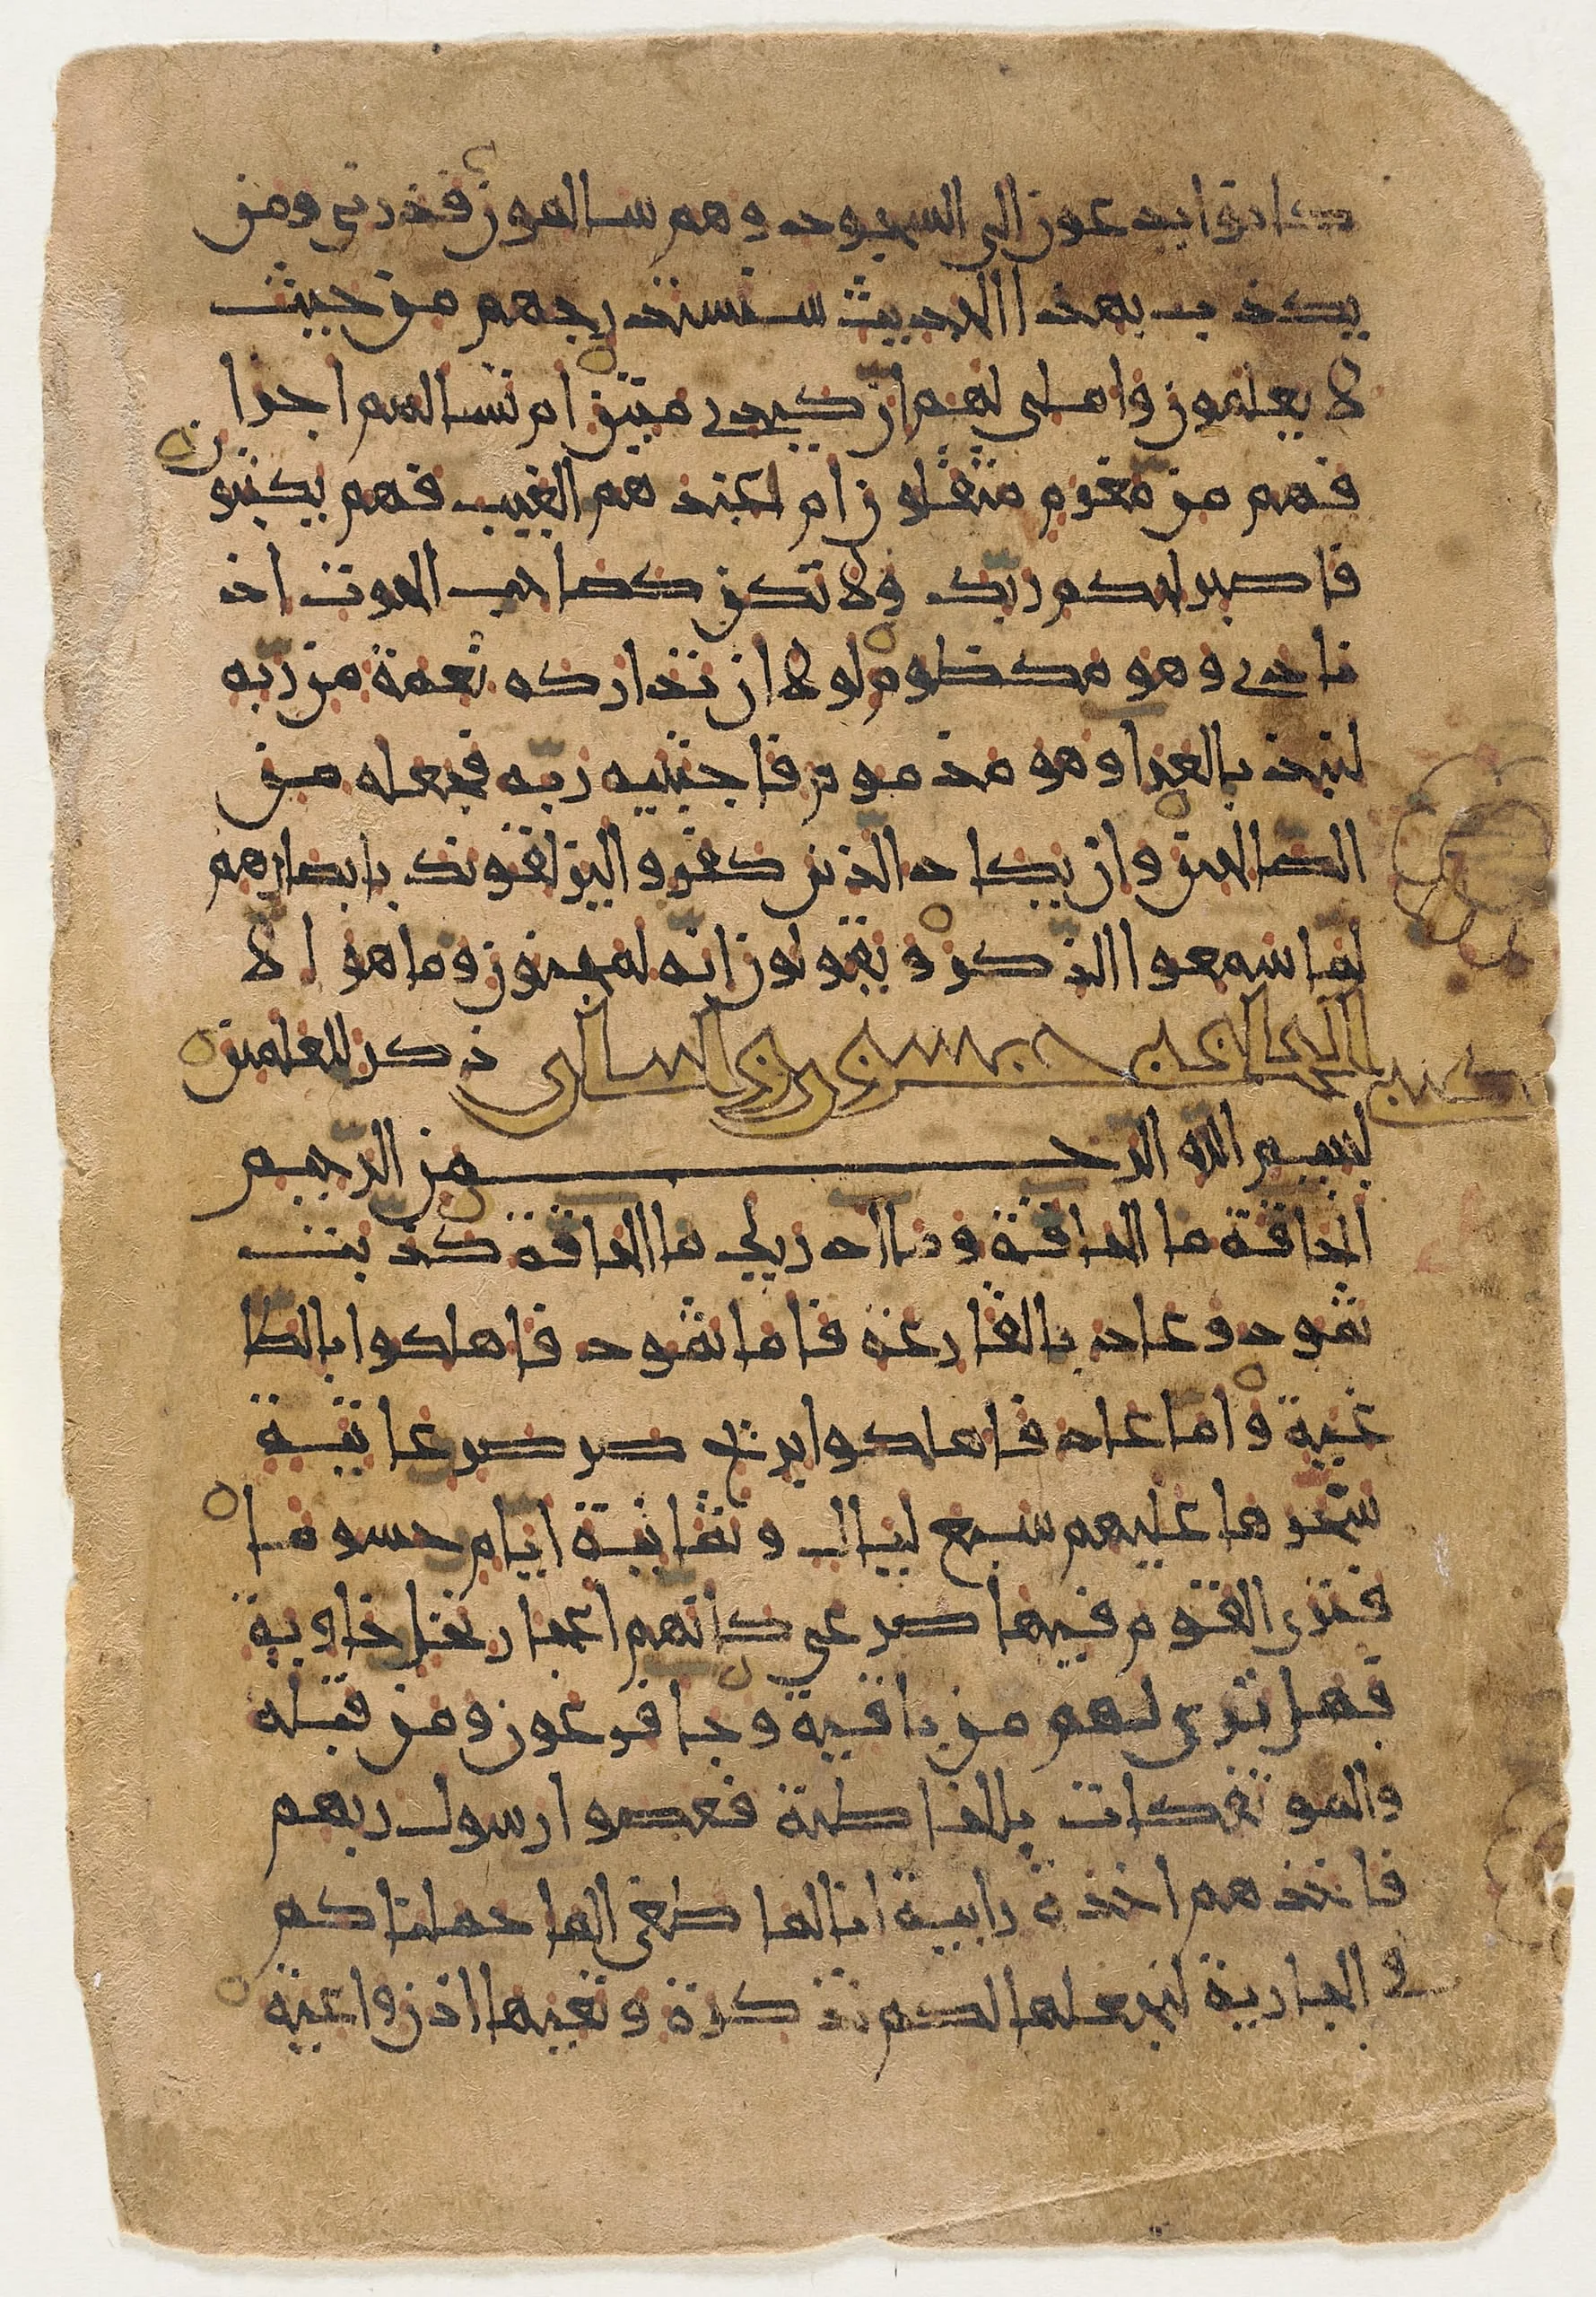 كانوا يدعون الى السجود وهم سالمون فذرني ومن
يكذب بهذا الحديث سنستدرجهم من حيث
لا يعلمون واملى لهم ان كيدي متين ام تسالهم اجرا
فهم من مغرم مثقلون ام عندهم الغيب فهم يكتبون
فاصبر لحكم ربّك ولا تكن كصاحب الحوت اذ
نادى وهو مكظوم لولا ان تداركه نعمة من ربّه
لنبذ بالعرا وهو مذموم فاجتبيه ربّه فجعله من
الصالحين وان يكاد الذين كفروا ليزلقونك بابصارهم
لمّا سمعوا الذّكر ويقولون انّه لمجنون وما هو الّا
ذكر للعلمين
بسم اللّه الرّحمن الرّحيم
الحاقّة ما الحاقّة وما ادريك ما الحاقّة كذّبت
ثمود وعاد بالقارعة فامّا ثمود فاهلكوا بالطا
غية وامّا عاد فاهلكوا بريح صرصر عاتية
سخّرها عليهم سبع ليال وثمانية ايّام حسوما
فترى القوم فيها صرعى كانّهم اعجاز نخل خاوية
فهل ترى لهم من باقية وجا فرعون ومن قبله
والموتفكات بالخاطئة فعصوا رسول ربهم
فاخذهم اخذة رابية انا لما طغى الما حملناكم
في الجارية لنجعلها لكم تذكرة وتعيها اذن واعية